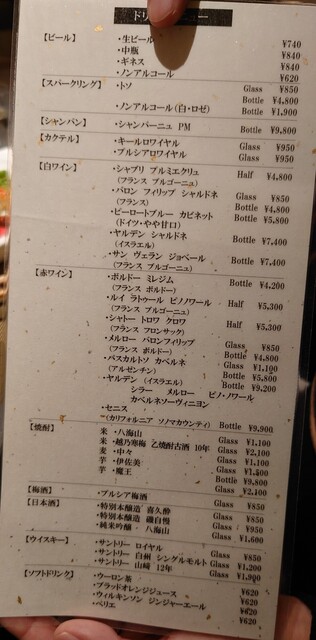 【ビール】 ・生ビール ¥740
・中瓶 ¥840
・ギネス ¥840
・ノンアルコール ¥620
【スパークリング】 ・トソ Glass ¥850
Bottle ¥4,800
・ノンアルコール(白・ロゼ) Bottle ¥1,900
【シャンパン】 ・シャンパーニュ PM Bottle ¥9,800
【カクテル】 ・キールロワイヤル Glass ¥950
・プルシアロワイヤル Glass ¥950
【白ワイン】 ・シャブリ プルミエクリュ Half ¥4,800
(フランス ブルゴーニュ)
・バロン フィリップ シャルドネ Glass ¥850
(フランス) Bottle ¥4,800
・ピーロートブルー カビネット Bottle ¥5,800
(ドイツ・やや甘口)
・ヤルデン シャルドネ Bottle ¥7,400
(イスラエル)
・サン ヴェラン ジョベール Bottle ¥7,400
(フランス ブルゴーニュ)
【赤ワイン】 ・ボルドー ミレジム Bottle ¥4,200
(フランス ボルドー)
・ルイ ラトゥール ピノノワール Half ¥5,300
(フランス ブルゴーニュ)
・シャトー トロワ クロワ Half ¥5,300
(フランス フロンサック)
・メルロー バロンフィリップ Glass ¥850
(フランス ボルドー) Bottle ¥4,800
・パスカルトソ カベルネ Glass ¥1,100
(アルゼンチン) Bottle ¥5,800
・ヤルデン (イスラエル) Bottle ¥9,200
シラー メルロー ピノ・ノワール
カベルネソーヴィニヨン
・セニス Bottle ¥9,900
(カリフォルニア ソノマカウンティ)
【焼酎】 米 ・八海山 Glass ¥1,100
米 ・越乃寒梅 乙焼酎古酒 10年 Glass ¥2,100
麦 ・中々 Glass ¥1,100
芋 ・伊佐美 Glass ¥1,500
芋 ・魔王 Bottle ¥9,800
Glass ¥2,100
【梅酒】 ・プルシア梅酒 Glass ¥850
【日本酒】 ・特別本醸造 喜久酔 Glass ¥850
・特別本醸造 磯自慢 Glass ¥950
・純米吟醸 八海山 Glass ¥1,600
【ウイスキー】 ・サントリー ロイヤル Glass ¥850
・サントリー 白州 シングルモルト Glass ¥1,200
・サントリー 山崎 12年 Glass ¥1,900
【ソフトドリンク】 ・ウーロン茶 ¥620
・ブラッドオレンジジュース ¥620
・ウィルキンソン ジンジャーエール ¥620
・ペリエ ¥620